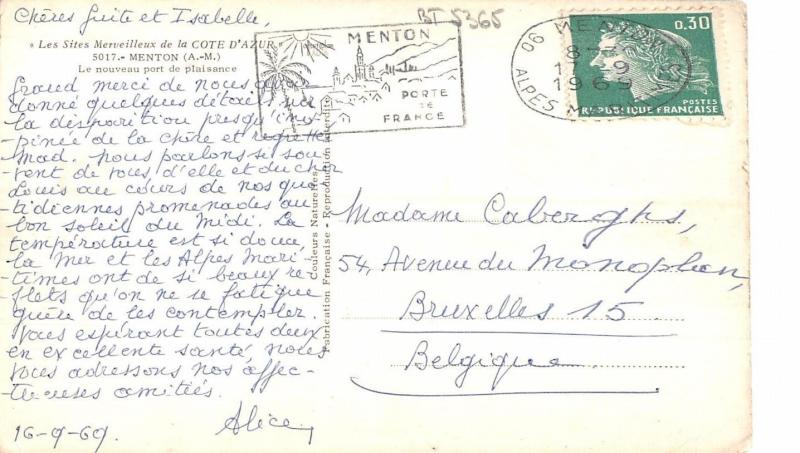 Chères Guite et Isabelle,
BT 5365
« Les Sites Merveilleux de la COTE D'AZUR »
5017.- MENTON (A.-M.)
Le nouveau port de plaisance
MENTON
PORTE
DE
FRANCE
06 MENTON
18-
1969
ALPES MMES
0,30
POSTES
REPUBLIQUE FRANÇAISE
Grand merci de nous avoir
donné quelques détails sur
la disparition presqu'ino-
-pinée de la chère et regrettée
Mad. nous parlons si sou-
vent de vous, d'elle et du cher
Louis au cours de nos quo
-tidiennes promenades au
bon soleil du Midi. La
température est si douce,
la Mer et les Alpes Mari-
-times ont de si beaux re-
-flets qu'on ne se fatigue
guère de les contempler.
Vous espérant toutes deux
en excellente santé, nous
vous adressons nos affec-
-tueuses amitiés.
Alice
16-9-69.
Couleurs Naturelles
Fabrication Française - Reproduction interdite
Madame Caberghs,
54, Avenue du Monoplan,
Bruxelles 15.
Belgique